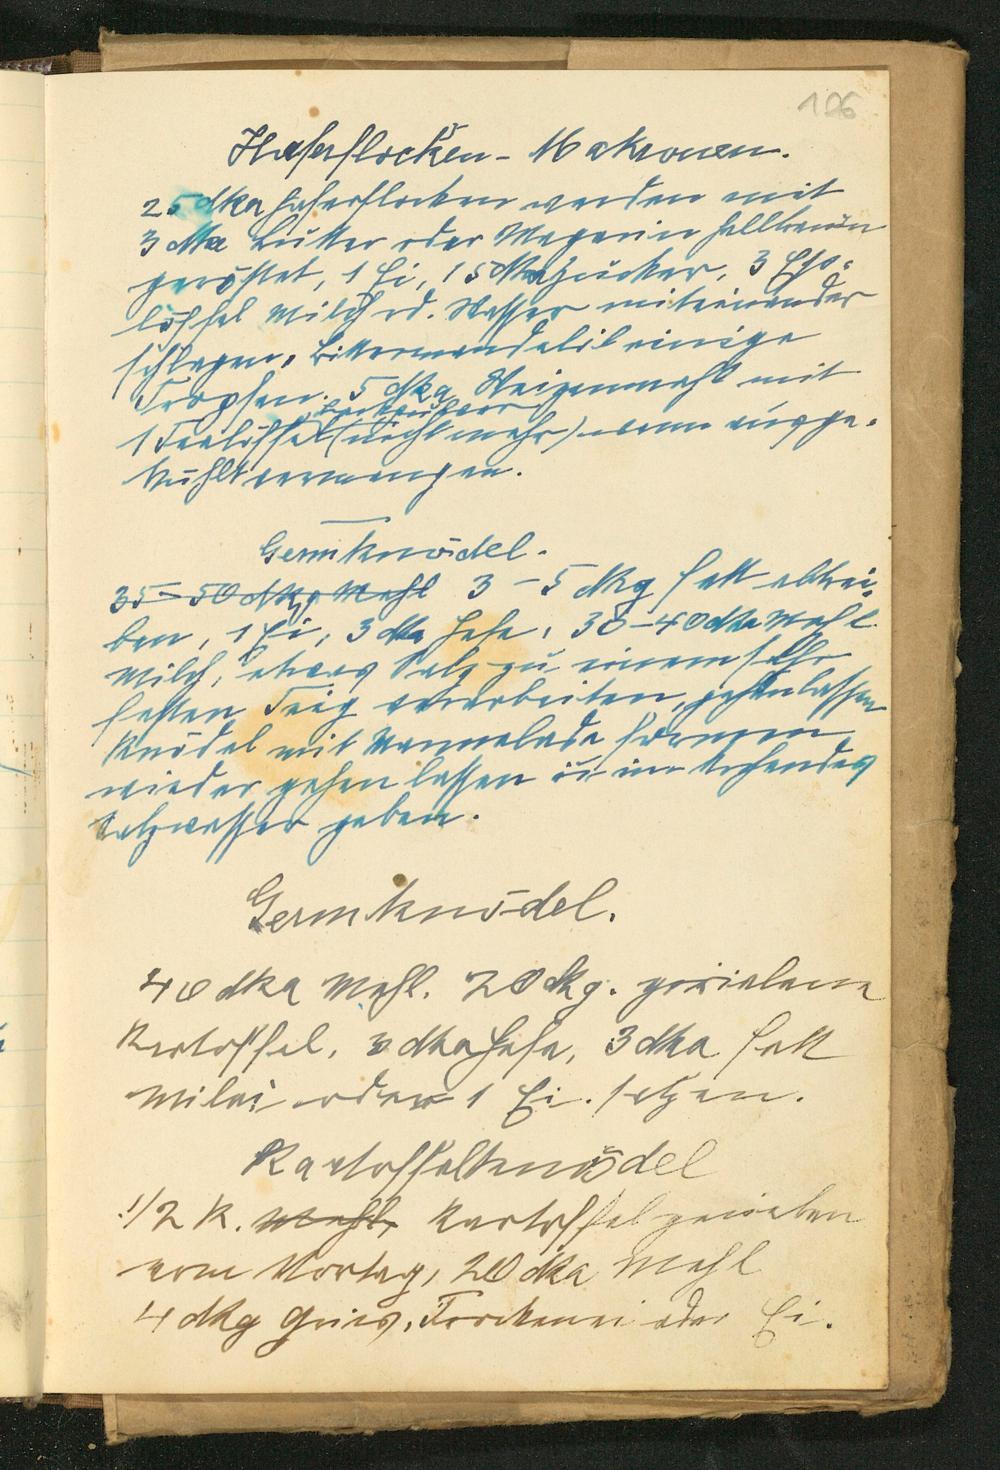 106
Haferflocken-Makronen.
25 dka Haferflocken werden mit
3 dka Butter oder Magarine hellbraun
geröstet, 1 Ei, 15 dka Zucker, 3 Ess-
löffel Milch od. Wasser miteinander
schlagen, Bittermandelöl einige
Tropfen. 5 dkg Weizenmehl mit
Backpulver
1 Teelöffel (nicht mehr) wenn ausge-
kühlt vermengen.
Germknödel.
35-50 dkg Mehl 3-5 dkg Fett abtrei-
ben, 1 Ei, 3 dka Hefe, 30-40 dka Mehl
Milch, etwas Salz zu einem sehr
festen Teig verarbeiten, gehen lassen
Knödel mit Marmelade formen,
wieder gehen lassen u in kochendes
Salzwasser geben.
Germknödel.
40 dka Mehl. 20 dkg. geriebene
Kartoffel, 3 dka Hefe, 3 dka Fett
Milei oder 1 Ei. salzen.
Kartoffelknödel
1/2 K. Mehl, Kartoffel gerieben
vom Vortag, 20 dka Mehl
4 dkg Gries, Trockenei oder Ei.